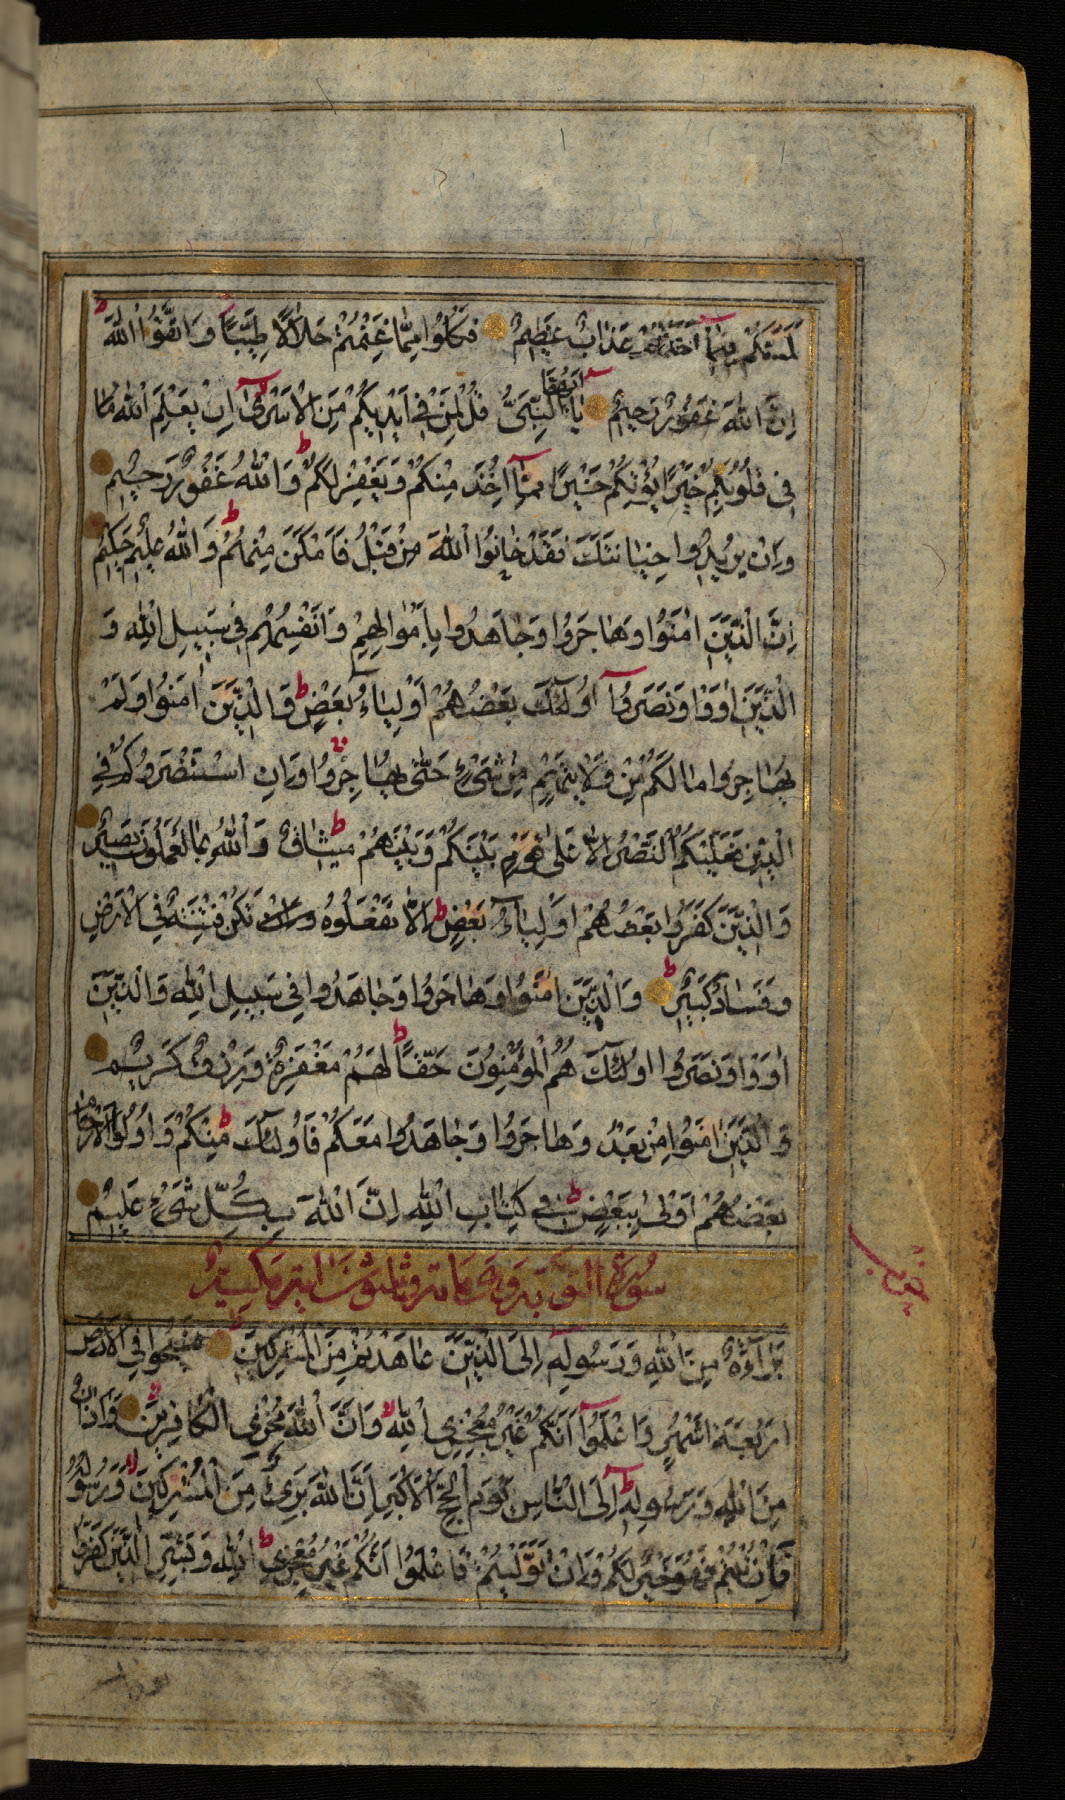 لَمَسَّكُمْ فِيمَا أَخَذْتُمْ عَذَابٌ عَظِيمٌ فَكُلُوا مِمَّا غَنِمْتُمْ حَلَالًا طَيِّبًا وَاتَّقُوا اللهَ ط
إِنَّ اللهَ غَفُورٌ رَحِيمٌ يَا أَيُّهَا النَّبِيُّ قُلْ لِمَنْ فِي أَيْدِيكُمْ مِنَ الْأَسْرَىٰ إِنْ يَعْلَمِ اللهُ
فِي قُلُوبِكُمْ خَيْرًا يُؤْتِكُمْ خَيْرًا مِمَّا أُخِذَ مِنْكُمْ وَيَغْفِرْ لَكُمْ ط وَاللهُ غَفُورٌ رَحِيمٌ
وَإِنْ يُرِيدُوا خِيَانَتَكَ فَقَدْ خَانُوا اللهَ مِنْ قَبْلُ فَأَمْكَنَ مِنْهُمْ ط وَاللهُ عَلِيمٌ حَكِيمٌ
إِنَّ الَّذِينَ اٰمَنُوا وَهَاجَرُوا وَجَاهَدُوا بِأَمْوَالِهِمْ وَأَنْفُسِهِمْ فِي سَبِيلِ اللهِ وَ
الَّذِينَ اٰوَوْا وَنَصَرُوا أُولٰئِكَ بَعْضُهُمْ أَوْلِيَاءُ بَعْضٍ ط وَالَّذِينَ اٰمَنُوا وَلَمْ
يُهَاجِرُوا مَا لَكُمْ مِنْ وَلَايَتِهِمْ مِنْ شَيْءٍ حَتَّىٰ يُهَاجِرُوا وَإِنِ اسْتَنْصَرُوكُمْ فِي
الدِّينِ فَعَلَيْكُمُ النَّصْرُ إِلَّا عَلَىٰ قَوْمٍ بَيْنَكُمْ وَبَيْنَهُمْ مِيثَاقٌ ط وَاللهُ بِمَا تَعْمَلُونَ بَصِيرٌ
وَالَّذِينَ كَفَرُوا بَعْضُهُمْ أَوْلِيَاءُ بَعْضٍ ط إِلَّا تَفْعَلُوهُ تَكُنْ فِتْنَةٌ فِي الْأَرْضِ
وَفَسَادٌ كَبِيرٌ ط وَالَّذِينَ اٰمَنُوا وَهَاجَرُوا وَجَاهَدُوا فِي سَبِيلِ اللهِ وَالَّذِينَ
اٰوَوْا وَنَصَرُوا أُولٰئِكَ هُمُ الْمُؤْمِنُونَ حَقًّا ط لَهُمْ مَغْفِرَةٌ وَرِزْقٌ كَرِيمٌ
وَالَّذِينَ اٰمَنُوا مِنْ بَعْدُ وَهَاجَرُوا وَجَاهَدُوا مَعَكُمْ فَأُولٰئِكَ مِنْكُمْ ط وَأُولُوا الْأَرْحَامِ
بَعْضُهُمْ أَوْلَىٰ بِبَعْضٍ فِي كِتَابِ اللهِ إِنَّ اللهَ بِكُلِّ شَيْءٍ عَلِيمٌ
سورة التوبة
بَرَاءَةٌ مِنَ اللهِ وَرَسُولِهِ إِلَى الَّذِينَ عَاهَدْتُمْ مِنَ الْمُشْرِكِينَ ط فَسِيحُوا فِي الْأَرْضِ
أَرْبَعَةَ أَشْهُرٍ وَاعْلَمُوا أَنَّكُمْ غَيْرُ مُعْجِزِي اللهِ لا وَأَنَّ اللهَ مُخْزِي الْكَافِرِينَ وَأَذَانٌ
مِنَ اللهِ وَرَسُولِهِ إِلَى النَّاسِ يَوْمَ الْحَجِّ الْأَكْبَرِ أَنَّ اللهَ بَرِيءٌ مِنَ الْمُشْرِكِينَ لا وَرَسُولُهُ
فَإِنْ تُبْتُمْ فَهُوَ خَيْرٌ لَكُمْ وَإِنْ تَوَلَّيْتُمْ فَاعْلَمُوا أَنَّكُمْ غَيْرُ مُعْجِزِي اللهِ ط وَبَشِّرِ الَّذِينَ كَفَرُوا
حزب